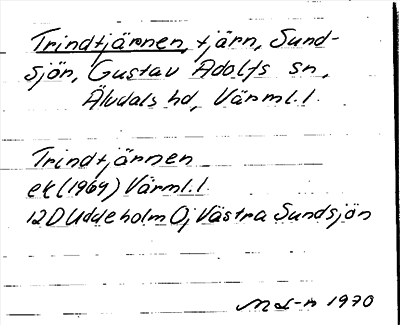 Trindtjärnen, tjärn, Sund-
sjön, Gustav Adolfs sn,
Älvdals hd, Värml.l.
Trindtjärnen
ek (1969) Värml.l.
12D Uddeholm Ö, Västra Sundsjön
1970